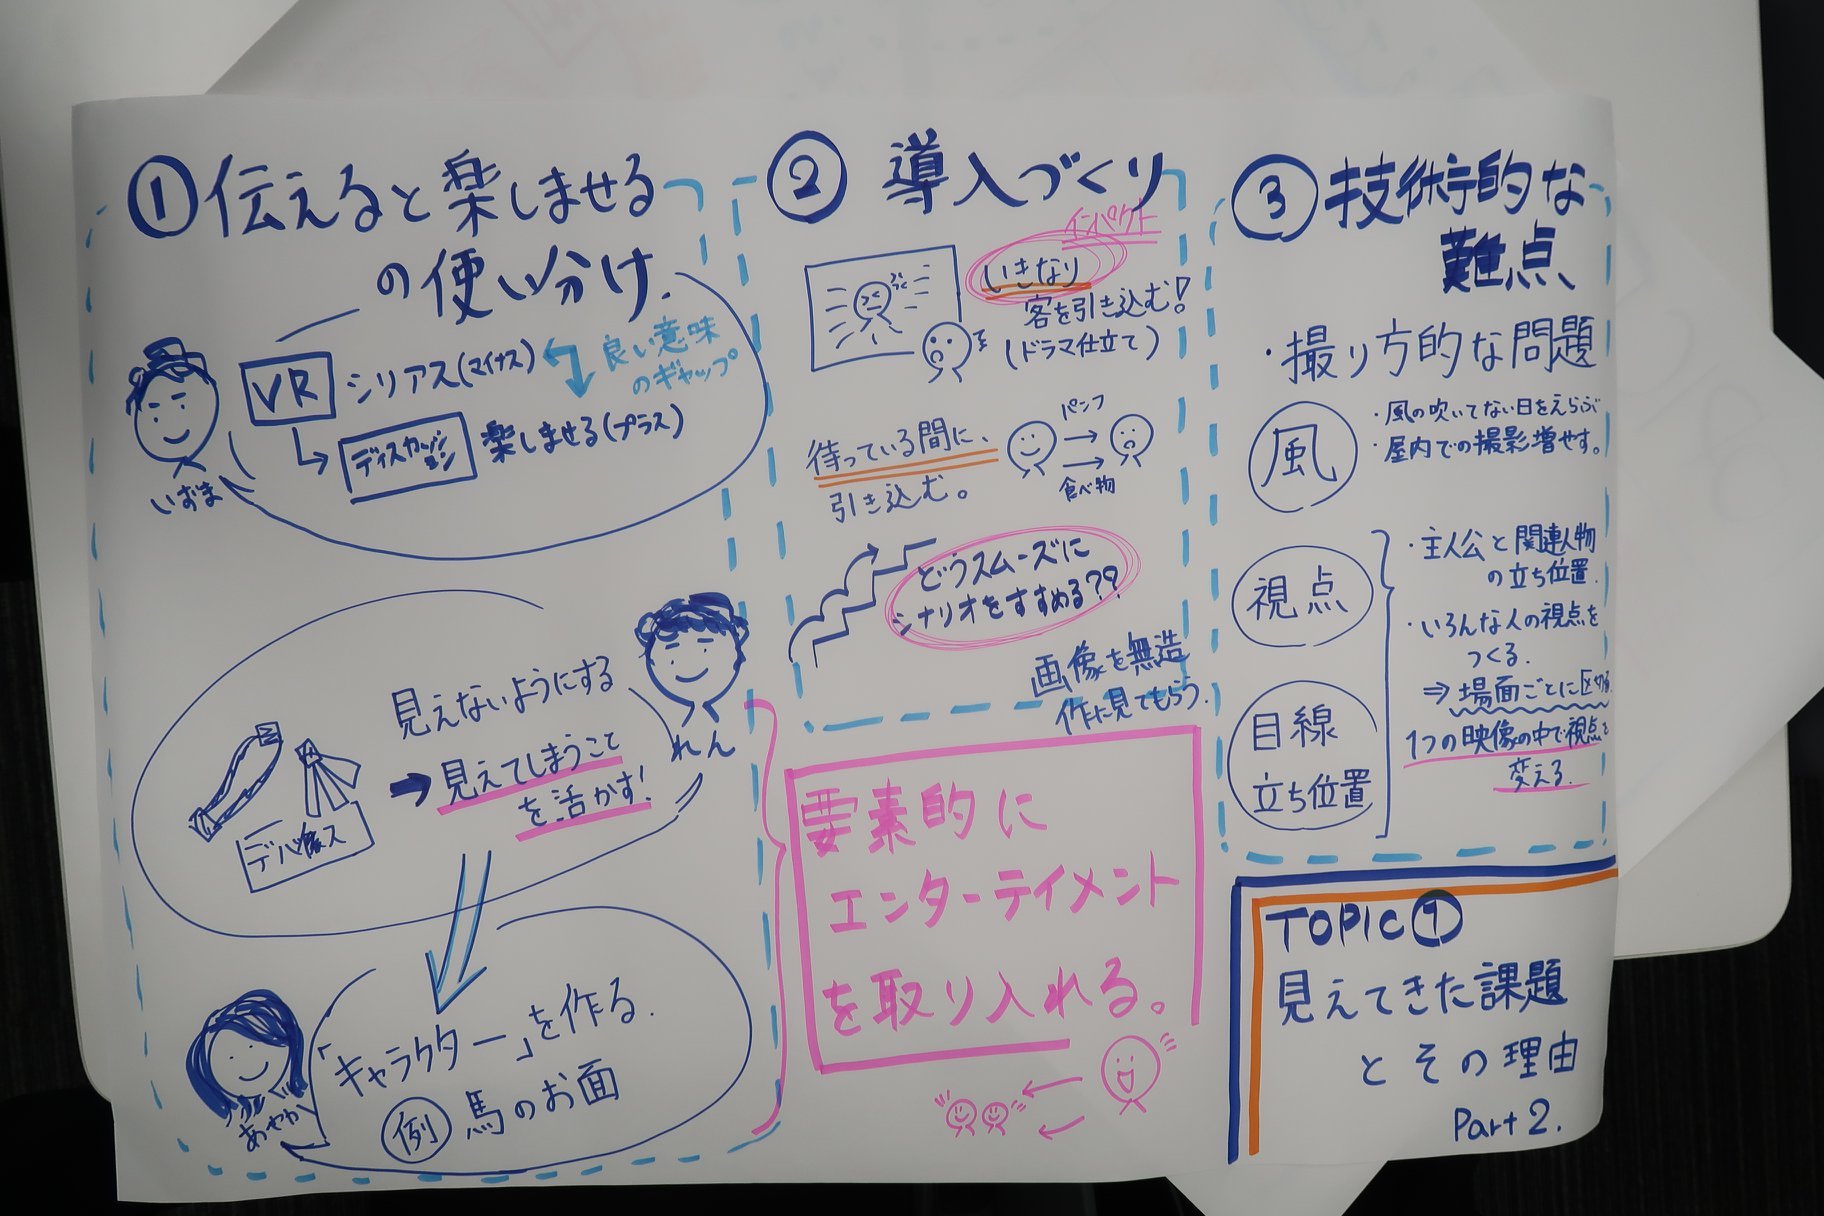 ① 伝えると楽しませる
の使い分け.
VR シリアス(マイナス)
良い意味
のギャップ
ディスカッション 楽しませる(プラス)
いずま
見えないようにする
→ 見えてしまうこと
を活かす!
れん
デバ
「キャラクター」を作る.
例 馬のお面
あやか
② 導入づくり
インパクト
いきなり
客を引き込む!
(ドラマ仕立て)
待っている間に、
引き込む。
パンフ
食べ物
どうスムーズに
シナリオをすすめる??
画像を無造
作に見てもらう.
要素的に
エンターテイメント
を取り入れる。
③ 技術的な
難点
・撮り方的な問題
風
・風の吹いてない日をえらぶ
・屋内での撮影増やす。
視点
目線
立ち位置
・主人公と関連人物
の立ち位置.
・いろんな人の視点を
つくる.
⇒ 場面ごとに
1つの映像の中で視点を
変える.
TOPIC①
見えてきた課題
とその理由
Part 2.